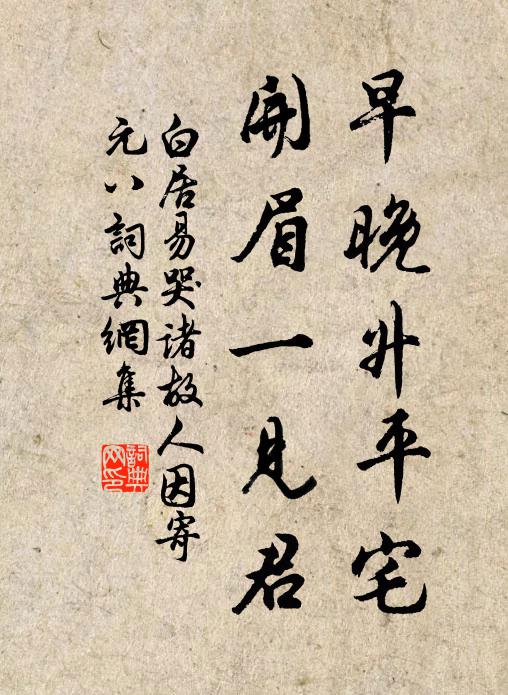 早晚升平宅
開眉一見君
白居易哭諸故人因寄
元八詞典網集
詞典网印